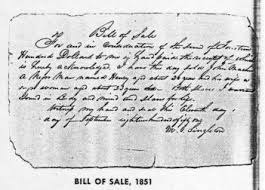 Bill of Sale
For and in Consideration of the Sum of
Hundred Dollars to me in hand paid the receipt of which
is hereby acknowledged I have this day sold John
A Negro Man named Henry aged about 36 years and his wife a
negro woman aged about 33 years Both Slaves I warrant
Sound in Body and mind and Slaves for life.
Witness my hand and seal this Eleventh day
day of September eighteen hundred fifty one
W. J. Singleton
BILL OF SALE, 1851